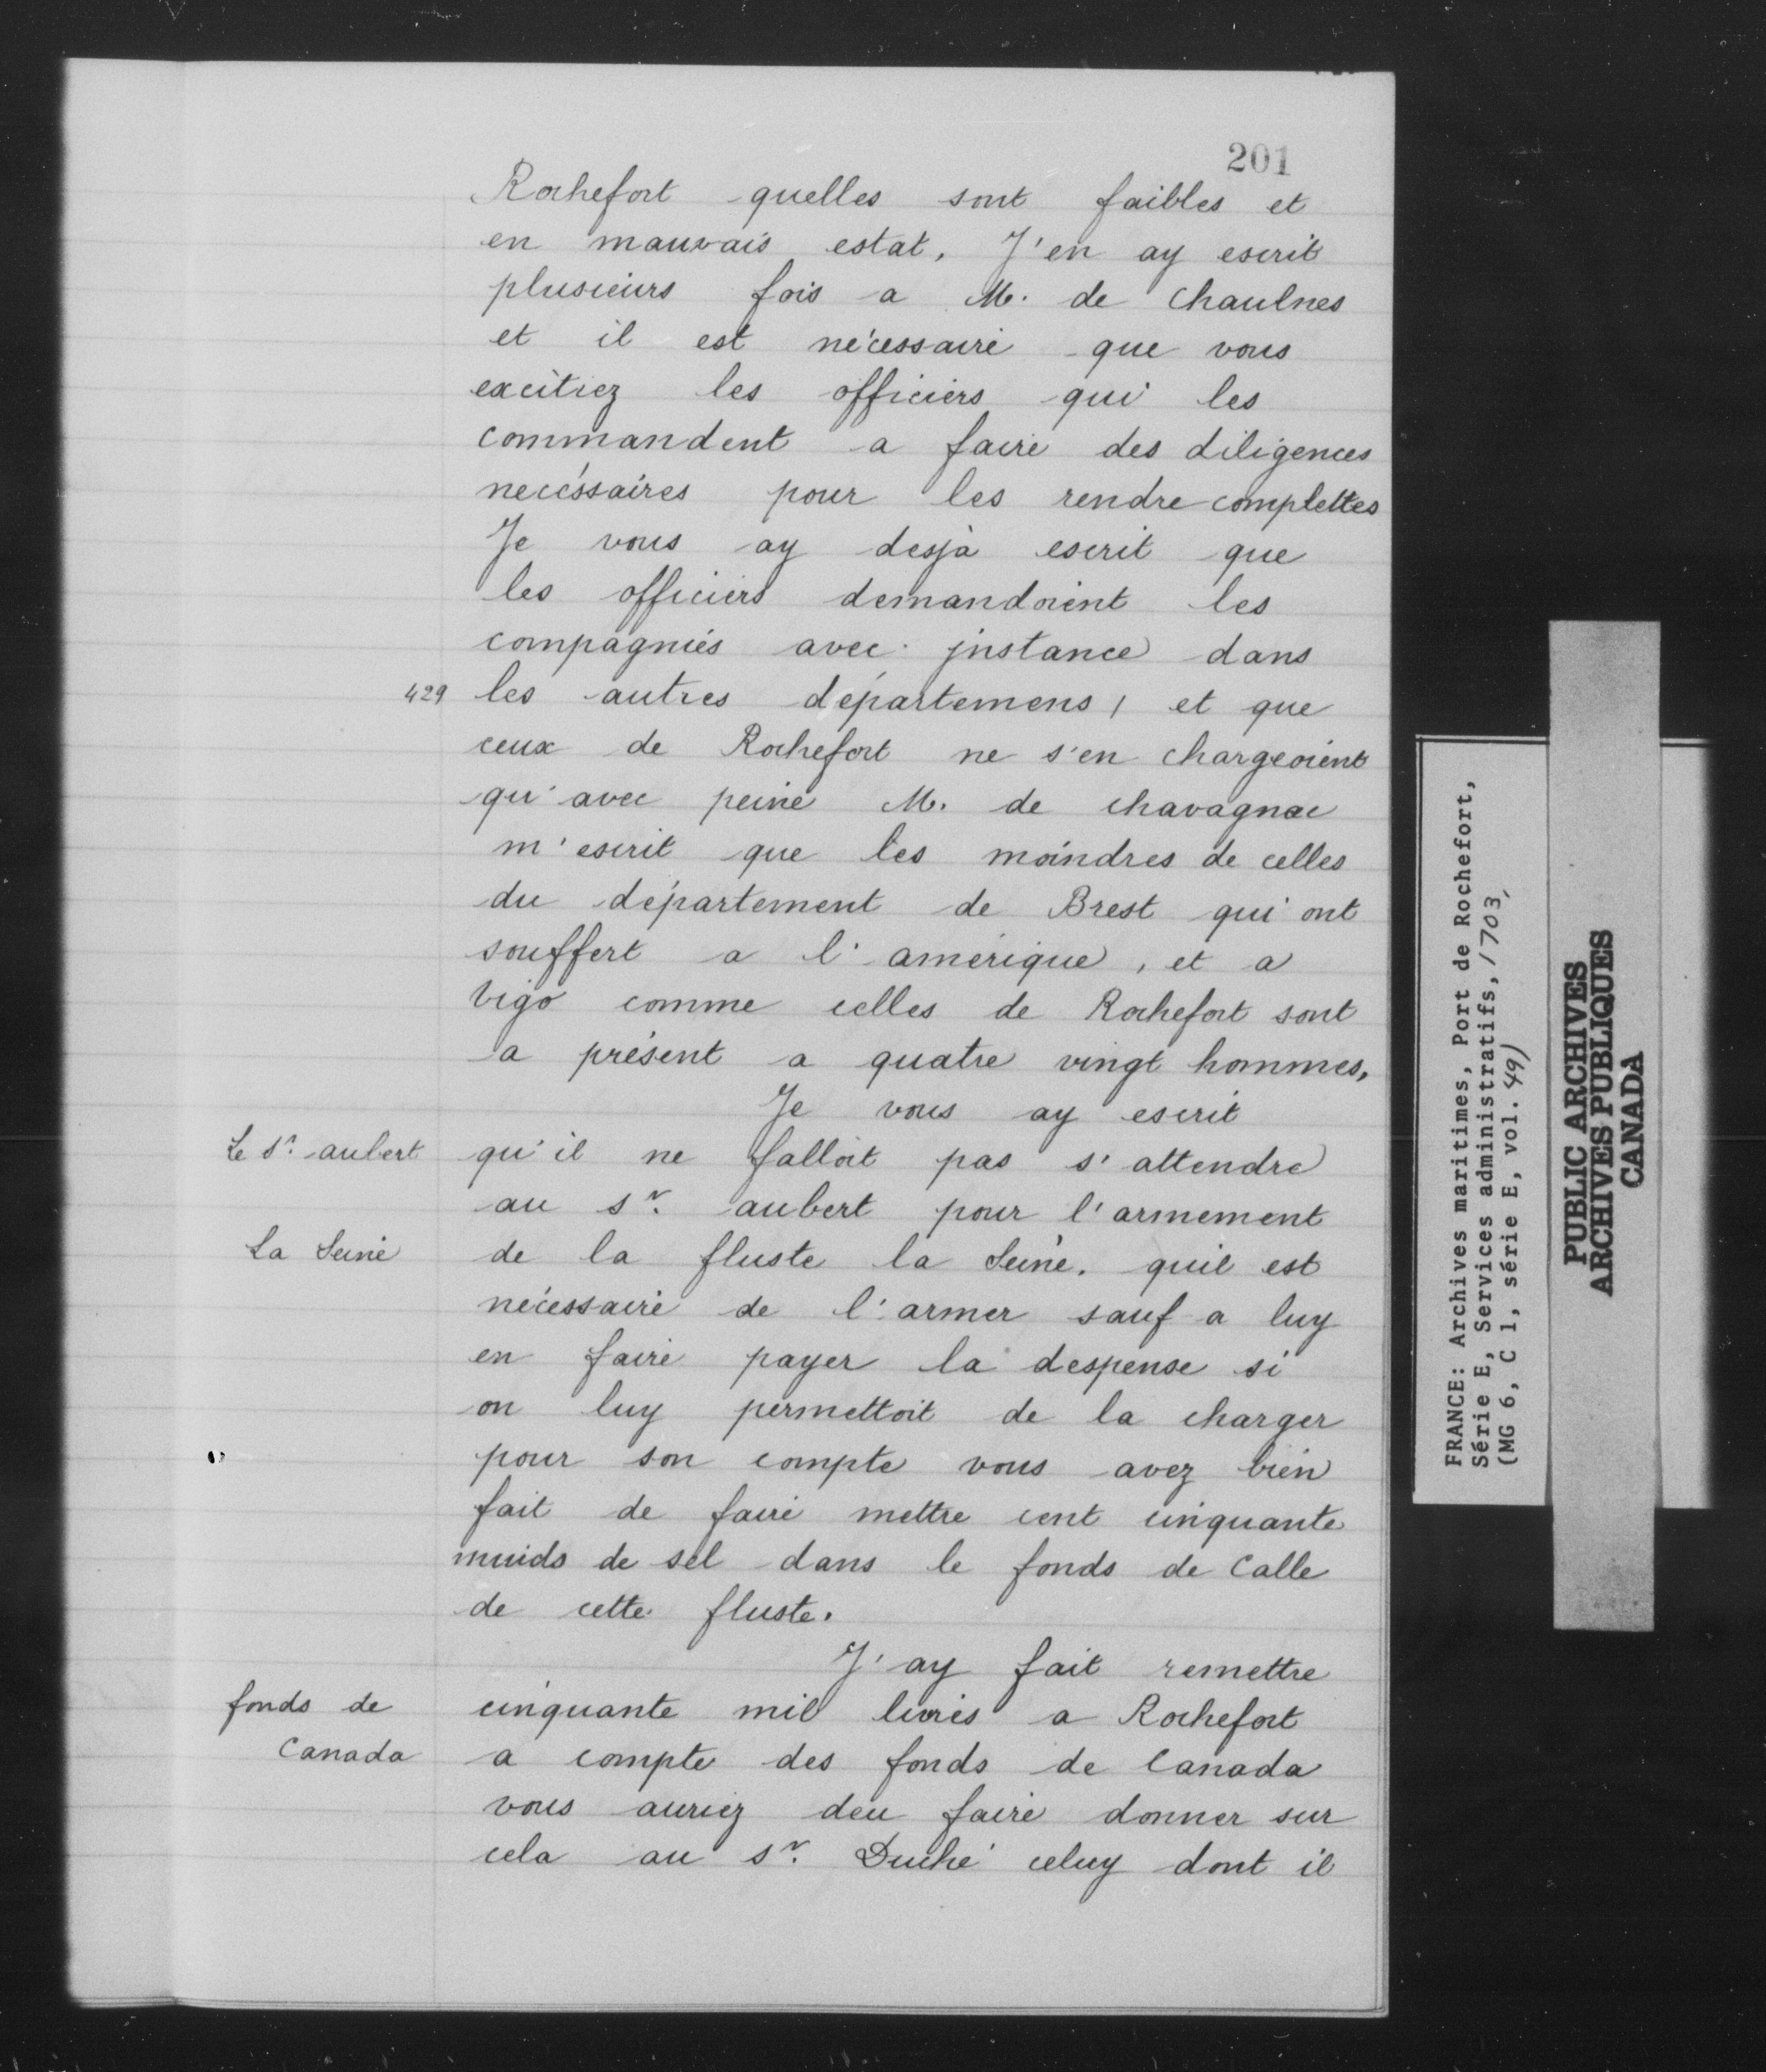 201
Rochefort quelles sont faibles et
en mauvais estat, J'en ay escrit
plusieurs fois a M. de Chaulnes
et il est nécessaire que vous
excitiez les officiers qui les
commandent a faire des diligences
necéssaires pour les rendre complettes
Je vous ay desja escrit que
les officiers demandoient les
compagnies avec instance dans
429 les autres départemens, et que
ceux de Rochefort ne s'en chargeoient
qu'avec peine M. de chavagnac
m'escrit que les moindres de celles
du département de Brest qui ont
souffert a l'amérique, et a
Vigo comme celles de Rochefort sont
a présent a quatre vingt hommes,
Je vous ay escrit
Le Sr. aubert qu'il ne falloit pas s'attendre
au sr. aubert pour l'armement
La Seine de la fluste la Seine. quil est
nécessaire de l'armer sauf a luy
en faire payer la despense si
on luy permettoit de la charger
pour son compte vous avez bien
fait de faire mettre cent cinquante
muids de sel dans le fonds de Calle
de cette fluste.
J'ay fait remettre
fonds de cinquante mil livres a Rochefort
Canada a compte des fonds de Canada
vous auriez deu faire donner sur
cela au sr. Duché celuy dont il
FRANCE: Archives maritimes, Port de Rochefort,
Série E, Services administratifs, 1703,
(MG 6, C 1, série E, vol. 49)
PUBLIC ARCHIVES
ARCHIVES PUBLIQUES
CANADA